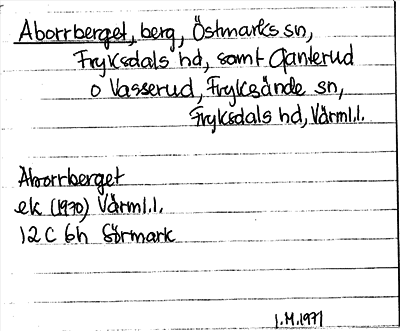 Aborrberget, berg, Östmarks sn,
Fryksdals hd, samt Djanterud
o Vasserud, Fryksände sn,
Fryksdals hd, Värml.l.
Aborrberget
ek (1970) Värml.l.
12 C 6h Sörmark
1.M.1971